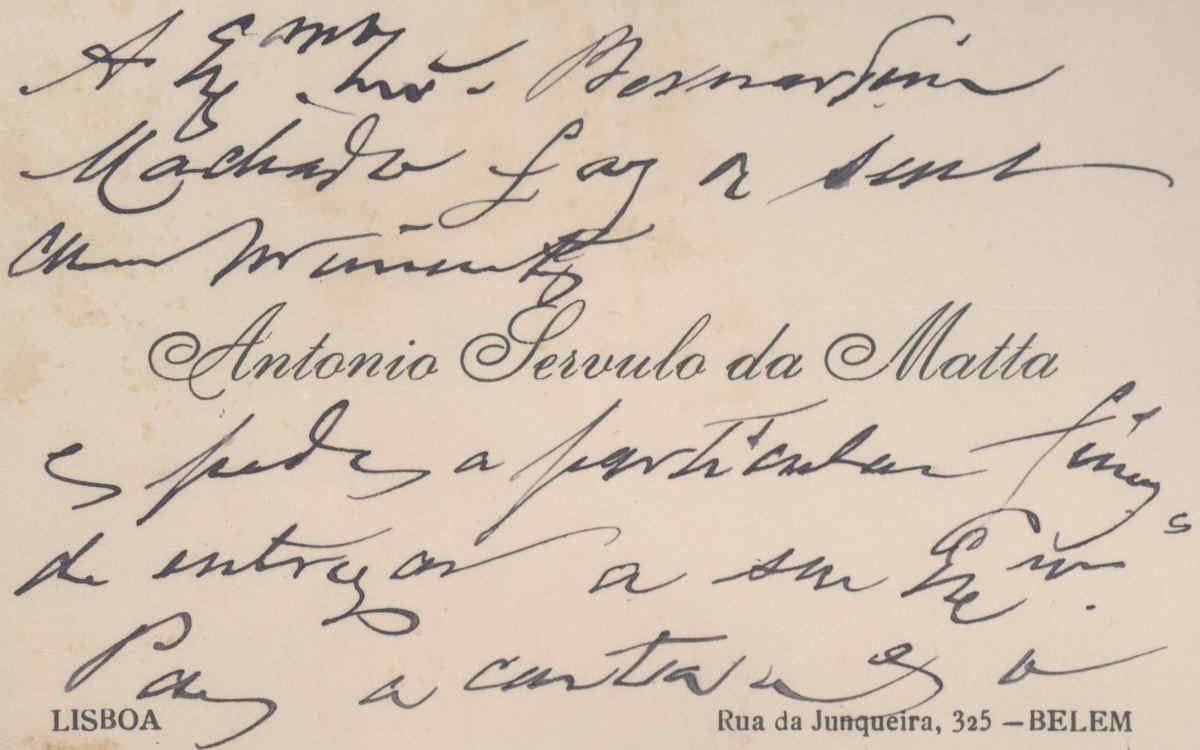 A Exma Snra Bernardino
Machado faz os seus
cumprimentos
Antonio Servulo da Matta
e pede a particular fineza
de entregar a seu Exmo
Pay a carta e o
LISBOA
Rua da Junqueira, 325 – BELEM